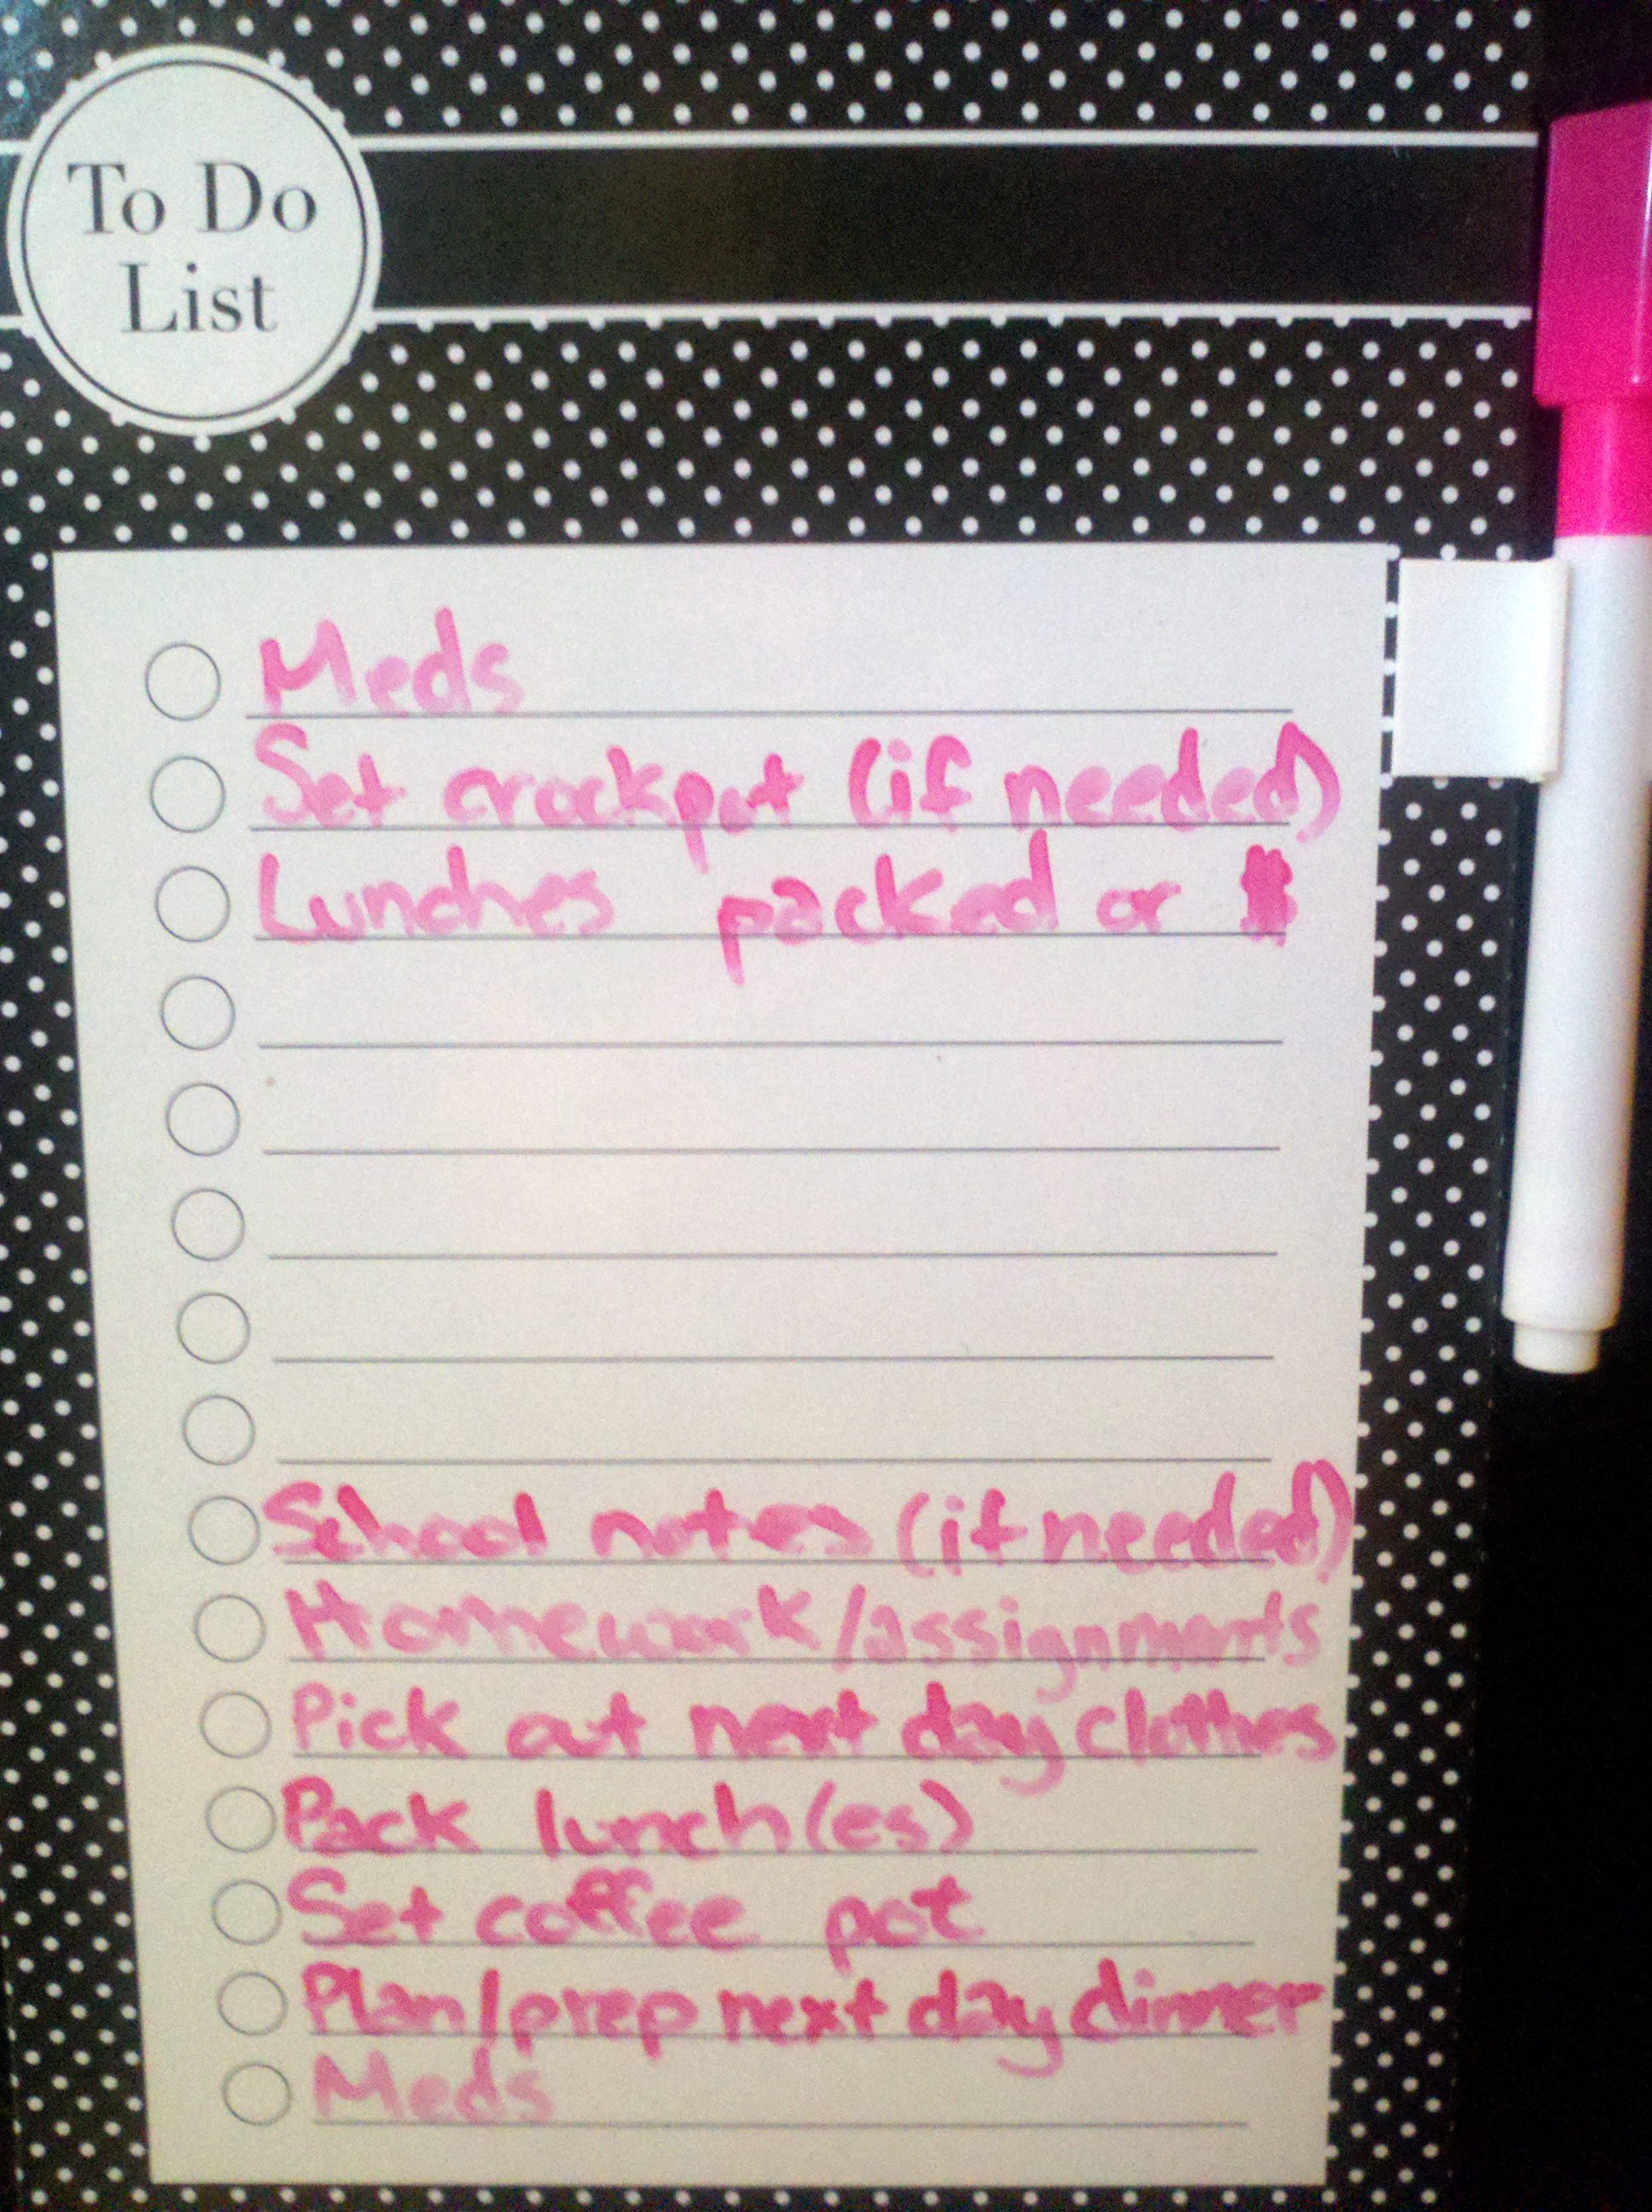 To Do
List
Meds
Set crockpot (if needed)
Lunches packed or $
School notes (if needed)
Homework/assignments
Pick out next day clothes
Pack lunch(es)
Set coffee pot
Plan/prep next day dinner
Meds